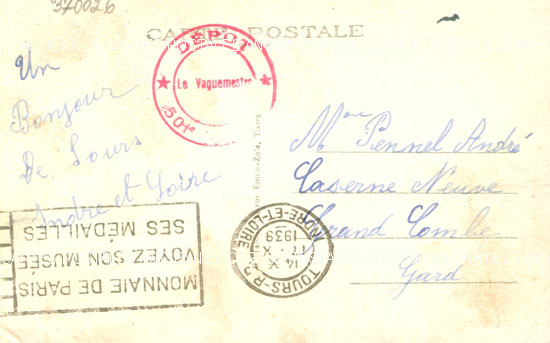 370026
CARTE POSTALE
DEPOT
Le Vaguemestre
501e
Un
Bonjour
De Tours
Indre et Loire
Emile-Zola, Tours
Mme Pennel André
Caserne Neuve
Grand Combe
Gard
TOURS-R.P.
14 X
17
1939
INDRE-ET-LOIRE
MONNAIE DE PARIS
VOYEZ SON MUSÉE
SES MÉDAILLES